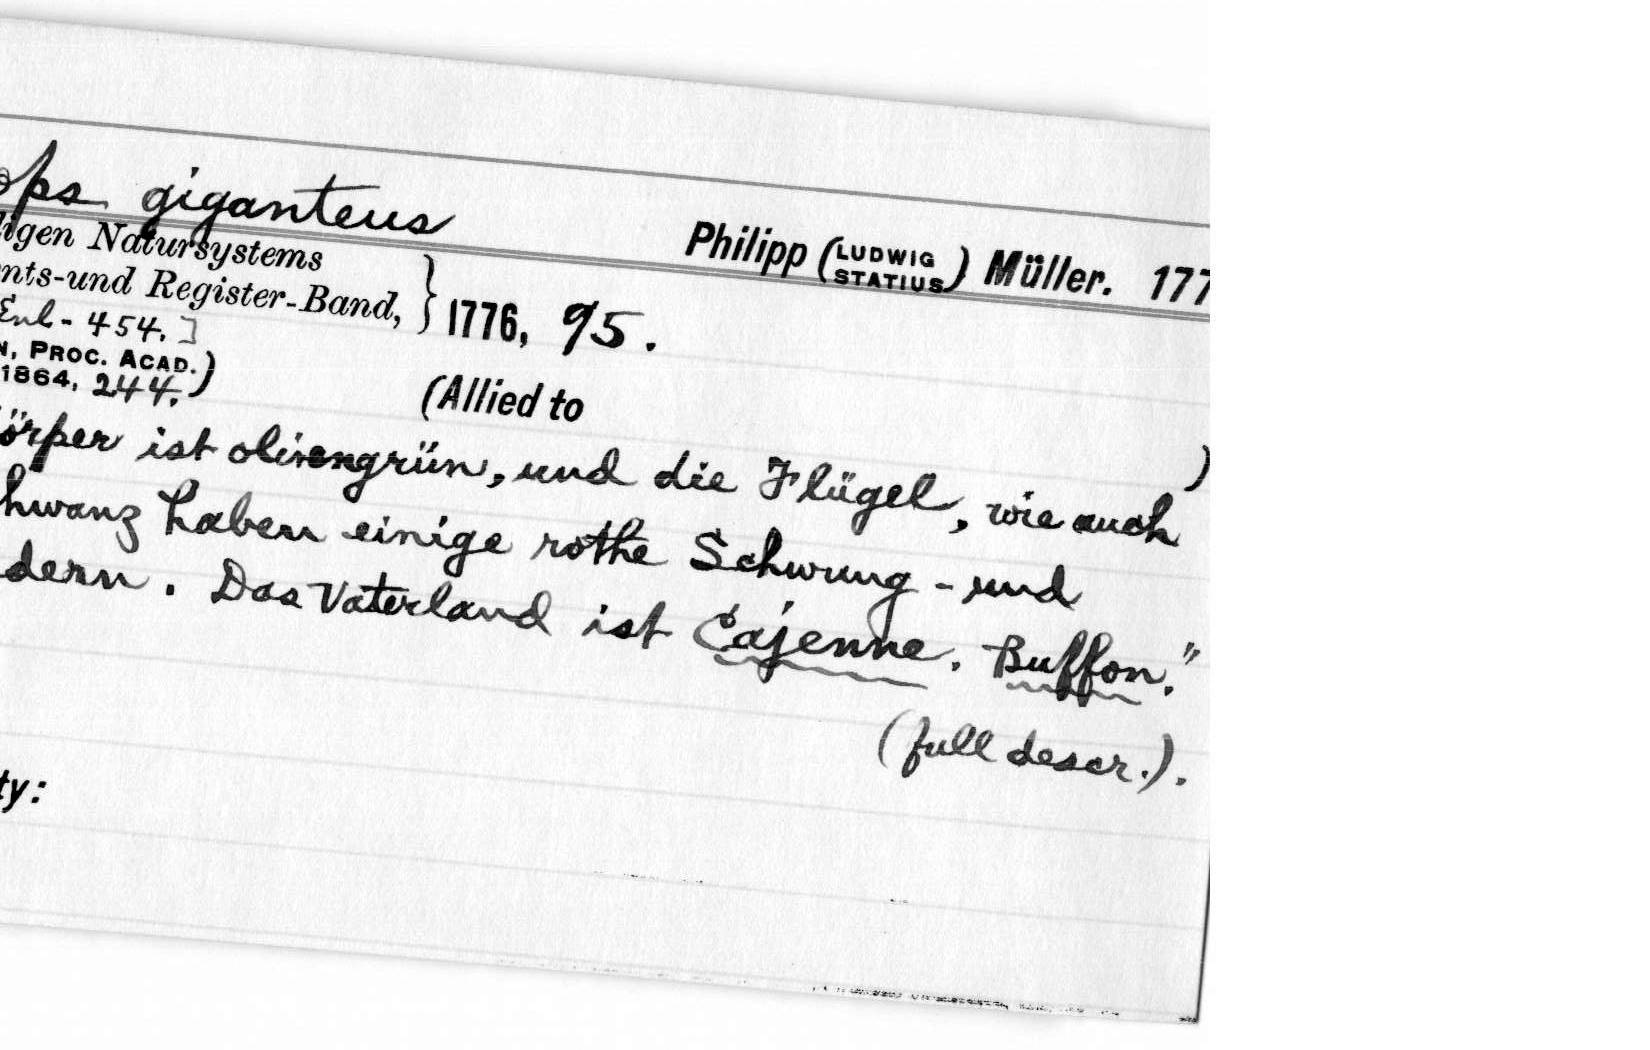 ops giganteus
Philipp (LUDWIG STATIUS) Müller. 177
igen Natursystems
nts-und Register-Band, } 1776, 95.
Enl - 454.]
N, PROC. ACAD.
1864, 244.)
(Allied to )
örper ist olivengrün, und die Flügel, wie auch
hwanz haben einige rothe Schwung - und
dern. Das Vaterland ist Cajenne. Buffon."
(full descr.).
ty: